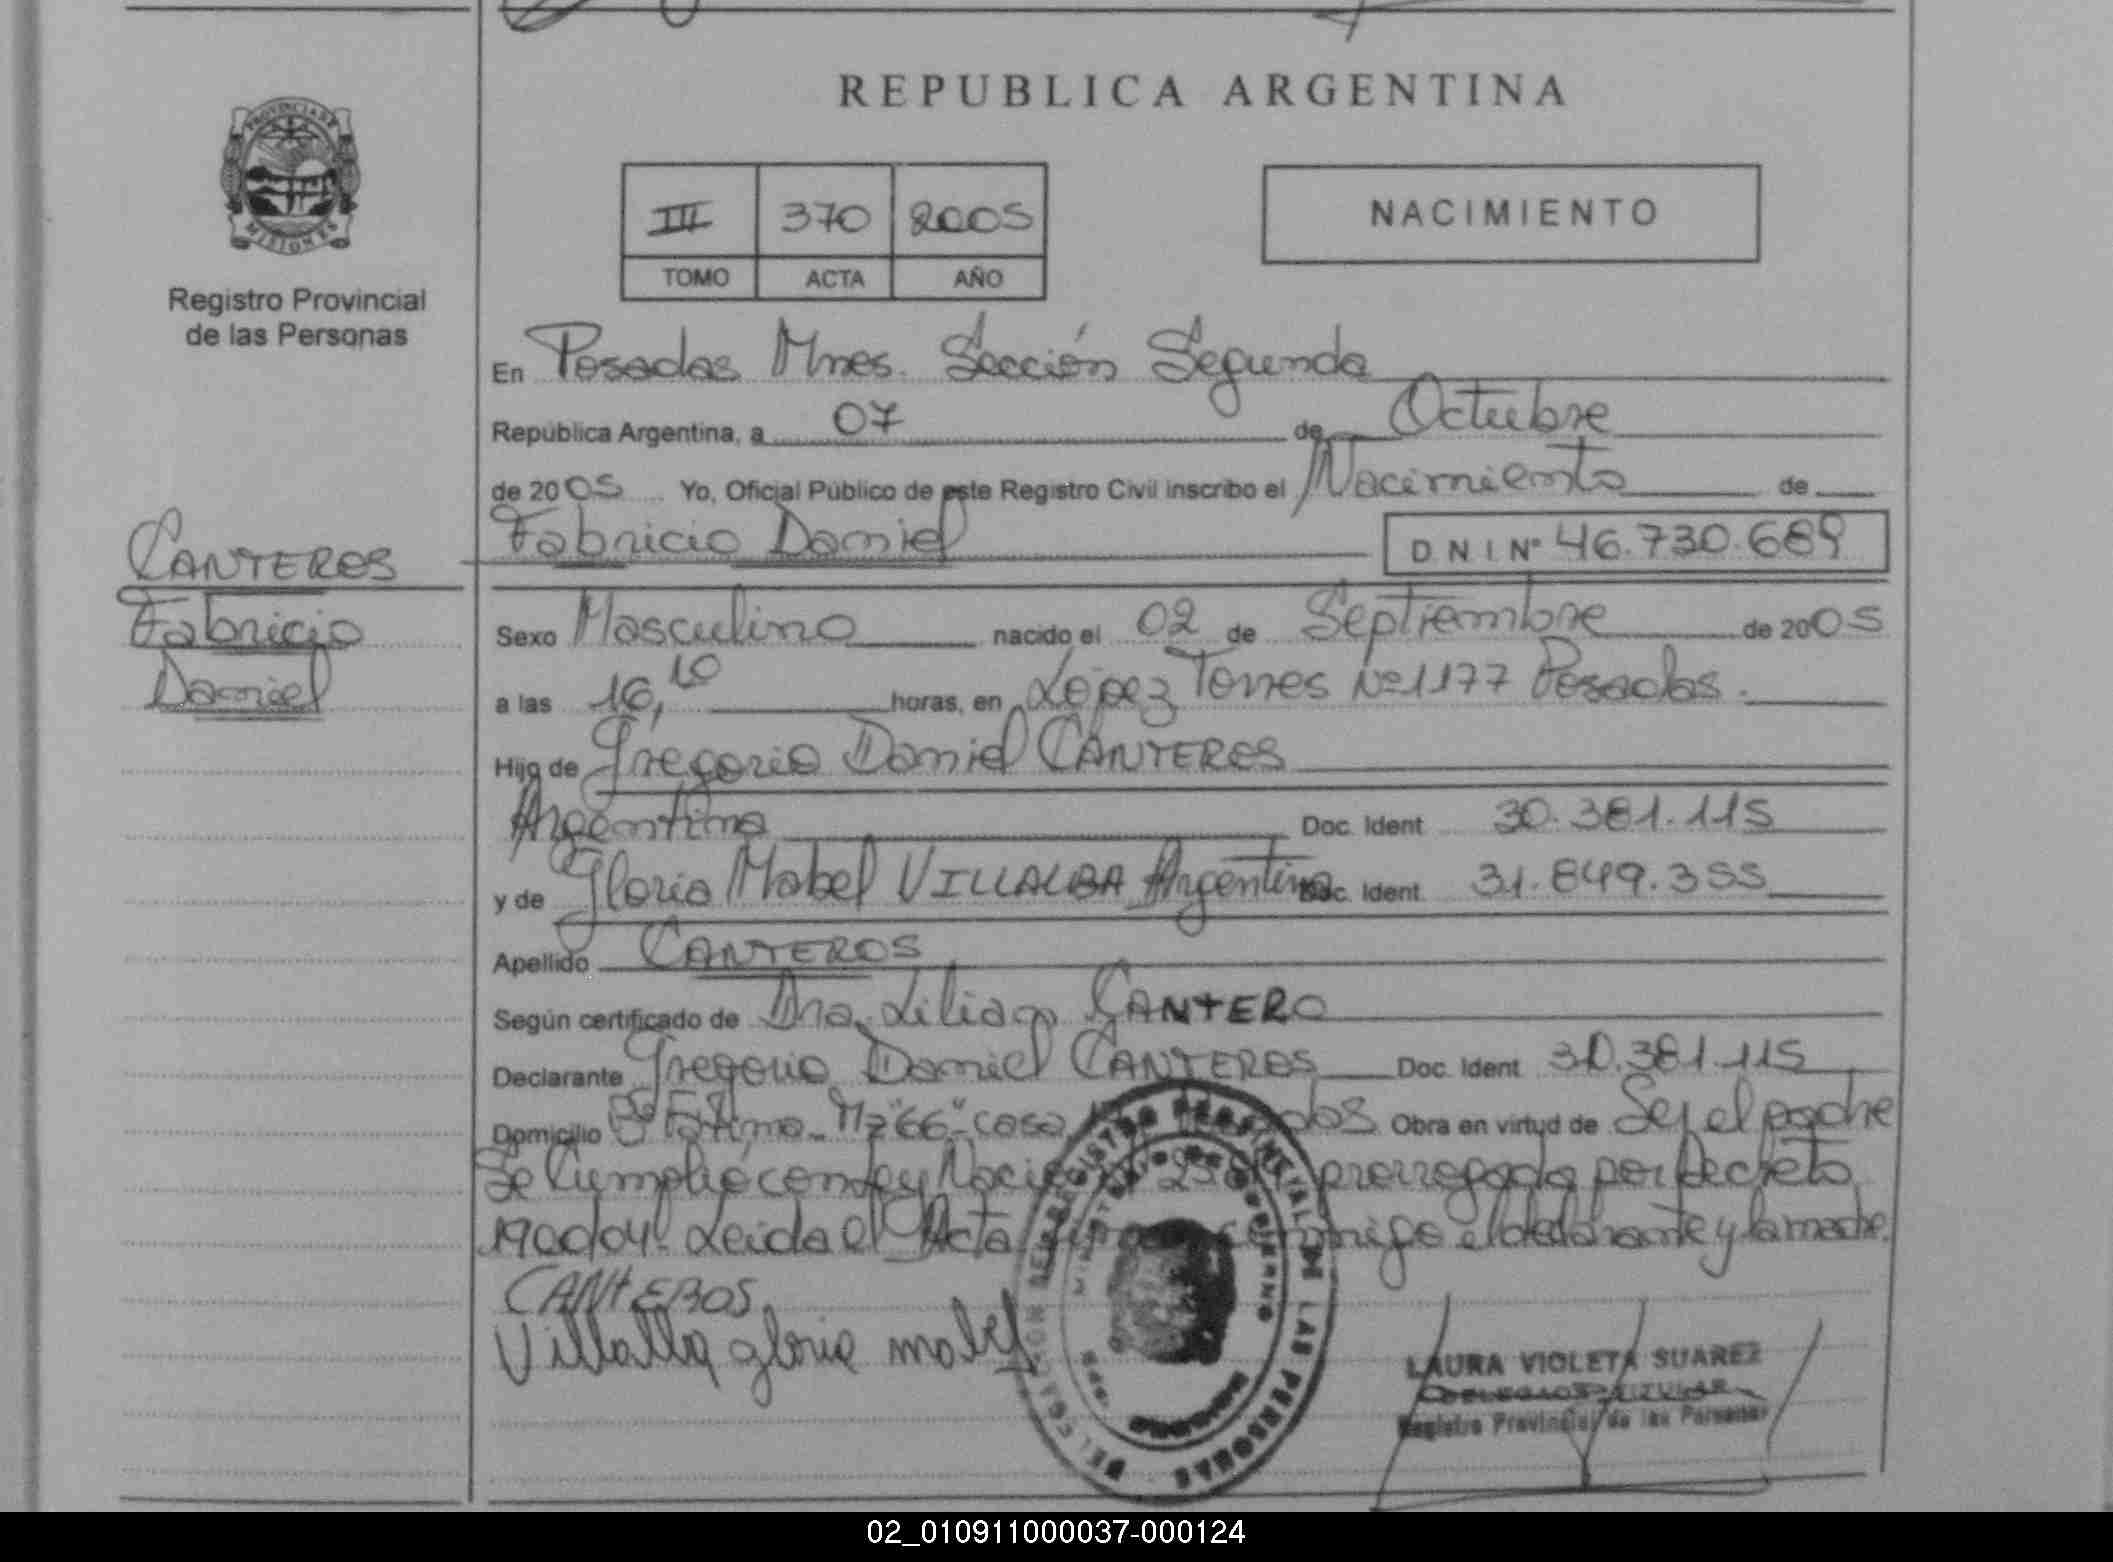 REPUBLICA ARGENTINA
PROVINCIA DE
MISIONES
Registro Provincial
de las Personas
III 370 2005
TOMO ACTA AÑO
NACIMIENTO
En Posadas Mnes. Sección Segunda
República Argentina, a 07 de Octubre
de 2005 Yo, Oficial Público de este Registro Civil inscribo el Nacimiento de
Fabricio Daniel
D N I Nº 46.730.689
CANTEROS
Fabricio
Daniel
Sexo Masculino nacido el 02 de Septiembre de 2005
a las 16,10 horas, en López Torres Nº 1177 Posadas.
Hijo de Gregorio Daniel CANTEROS
Argentino Doc. Ident 30.381.115
y de Gloria Mabel VILLALBA Argentina Doc. Ident 31.849.355
Apellido CANTEROS
Según certificado de Dra. Lilian CANTERO
Declarante Gregorio Daniel CANTEROS Doc. Ident 30.381.115
Domicilio Fátima Mz "66" casa Obra en virtud de Ser el padre
Se Cumplió con Ley prorrogada por decreto
1900/04. Leida el Acta conmigo el declarante y la madre.
CANTEROS
Villalba gloria mabel
DELEGACION DEL REGISTRO PROVINCIAL DE LAS PERSONAS
MINISTERIO DE GOBIERNO
LAURA VIOLETA SUAREZ
DELEGADO TITULAR
Registro Provincial de las Personas
02_010911000037-000124